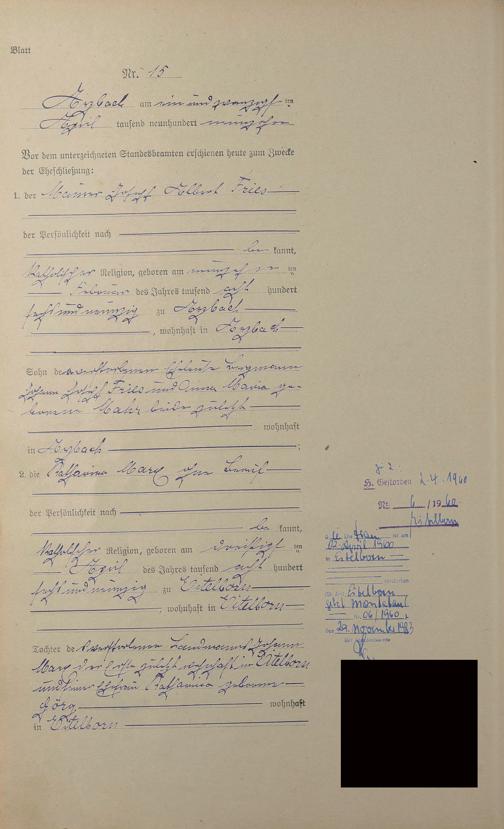 Blatt
Nr. 15
Arzbach am ein und zwanzigsten
April tausend neunhundert neunzehn
Vor dem unterzeichneten Standesbeamten erschienen heute zum Zwecke
der Eheschließung:
1. der Maurer Josef Albert Fries
der Persönlichkeit nach
bekannt,
katholischer Religion, geboren am
Februar des Jahres tausend acht hundert
sechs und neunzig zu Arzbach
, wohnhaft in Arzbach
Sohn der verstorbenen Eheleute Bergmann
Johann Josef Fries und Anna Maria ge-
borene beide zuletzt
wohnhaft
in Arzbach ;
2. die Katharina Marx ohne Beruf
der Persönlichkeit nach
bekannt,
katholischer Religion, geboren am
April des Jahres tausend acht hundert
sechs und neunzig zu Eitelborn
, wohnhaft in Eitelborn
Tochter des verstorbenen Landmanns Johann
Marx zuletzt wohnhaft in Eitelborn
und seiner Ehefrau Katharina geborene
Görg wohnhaft
in Eitelborn
H. Gestorben 2.4.1960
Nr. 6 / 1960
Eitelborn
Frau ist am
April 1960
in Eitelborn
Eitelborn
Montabaur
Nr. 06/1960
den 29. November 1983